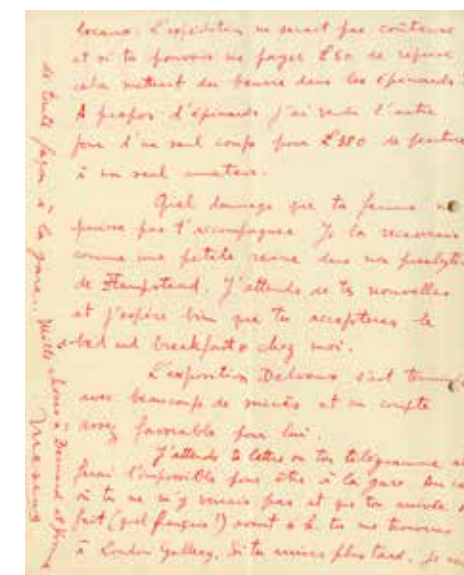 locaux. L'expédition ne serait pas coûteuse
et si tu pouvais me payer £50 de
cela mettrait du beurre dans les épinards.
A propos d'épinards j'ai vendu l'autre
jour d'un seul coup pour £380 de peinture
à un seul amateur.
Quel dommage que ta femme ne
puisse pas t'accompagner. Je la recevrais
comme une petite reine dans mon
de Hampstead. J'attends de tes nouvelles
et j'espère bien que tu accepteras le
bed and breakfast chez moi.
L'exposition Delvaux s'est
avec beaucoup de succès et un compte
assez favorable pour lui.
J'attends ta lettre ou ton télégramme et
ferai l'impossible pour être à la gare. Au
où tu ne m'y verrais pas et que ton arrivée
fait (quel !) avant 6 h. tu me trouveras
à London Gallery. Si tu arrives plus tard, je
de toute façon à la gare. Mille choses à
Mesens